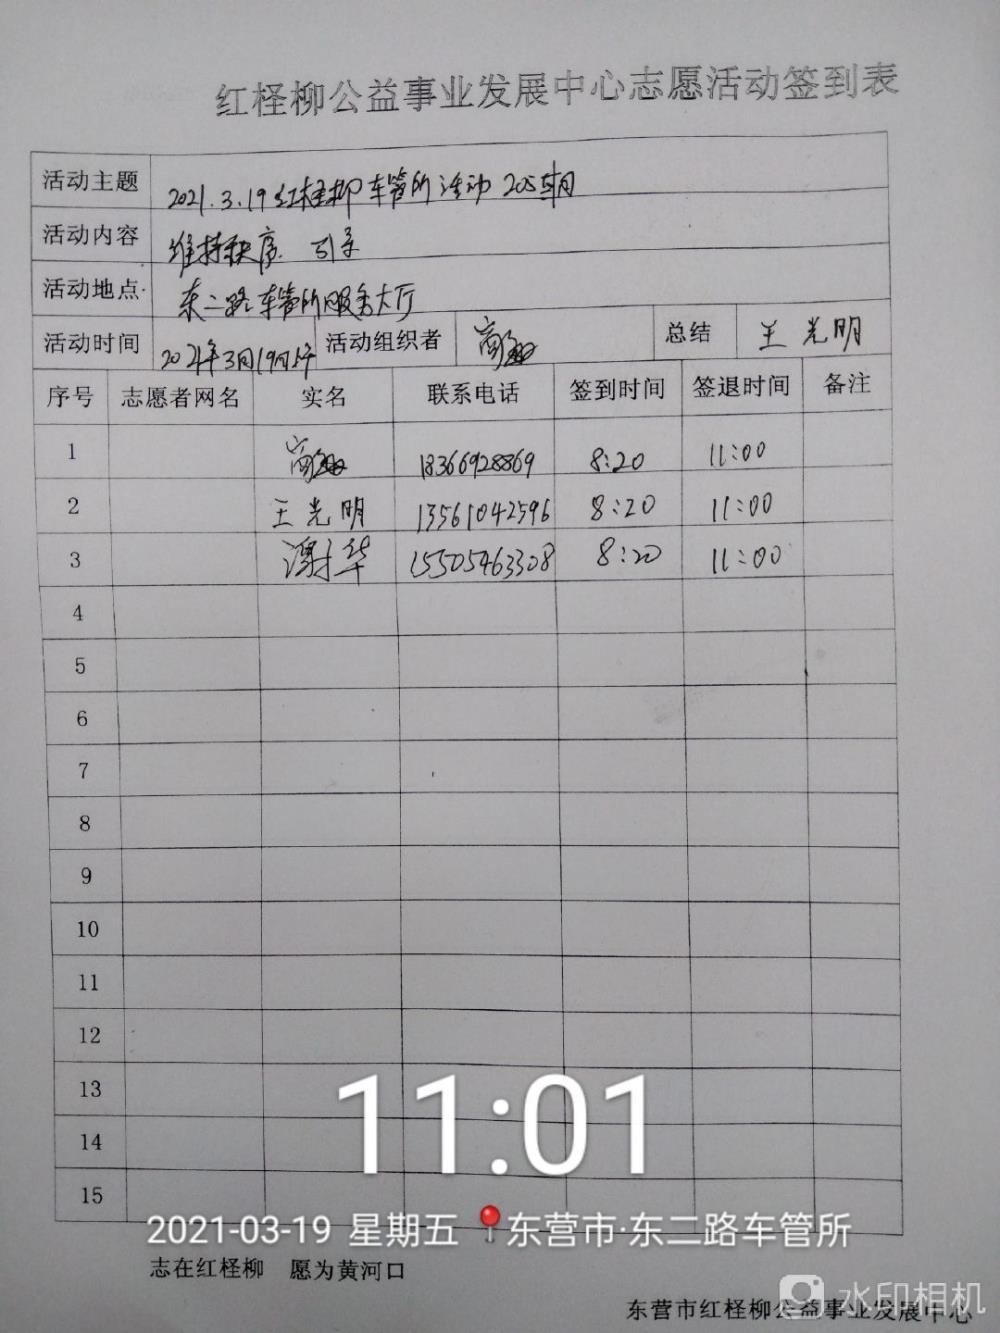 红柽柳公益事业发展中心志愿活动签到表
活动主题 2021.3.19红柽柳车管所活动 205期
活动内容 维持秩序 引导
活动地点 东二路车管所服务大厅
活动时间 2021年3月19日上午 活动组织者 总结 王光明
序号 志愿者网名 实名 联系电话 签到时间 签退时间 备注
1 18366928869 8:20 11:00
2 王光明 13561042596 8:20 11:00
3 谢华 15505463308 8:20 11:00
4
5
6
7
8
9
10
11
12
13
14
15
11:01
2021-03-19 星期五 东营市·东二路车管所
志在红柽柳 愿为黄河口
水印相机
东营市红柽柳公益事业发展中心